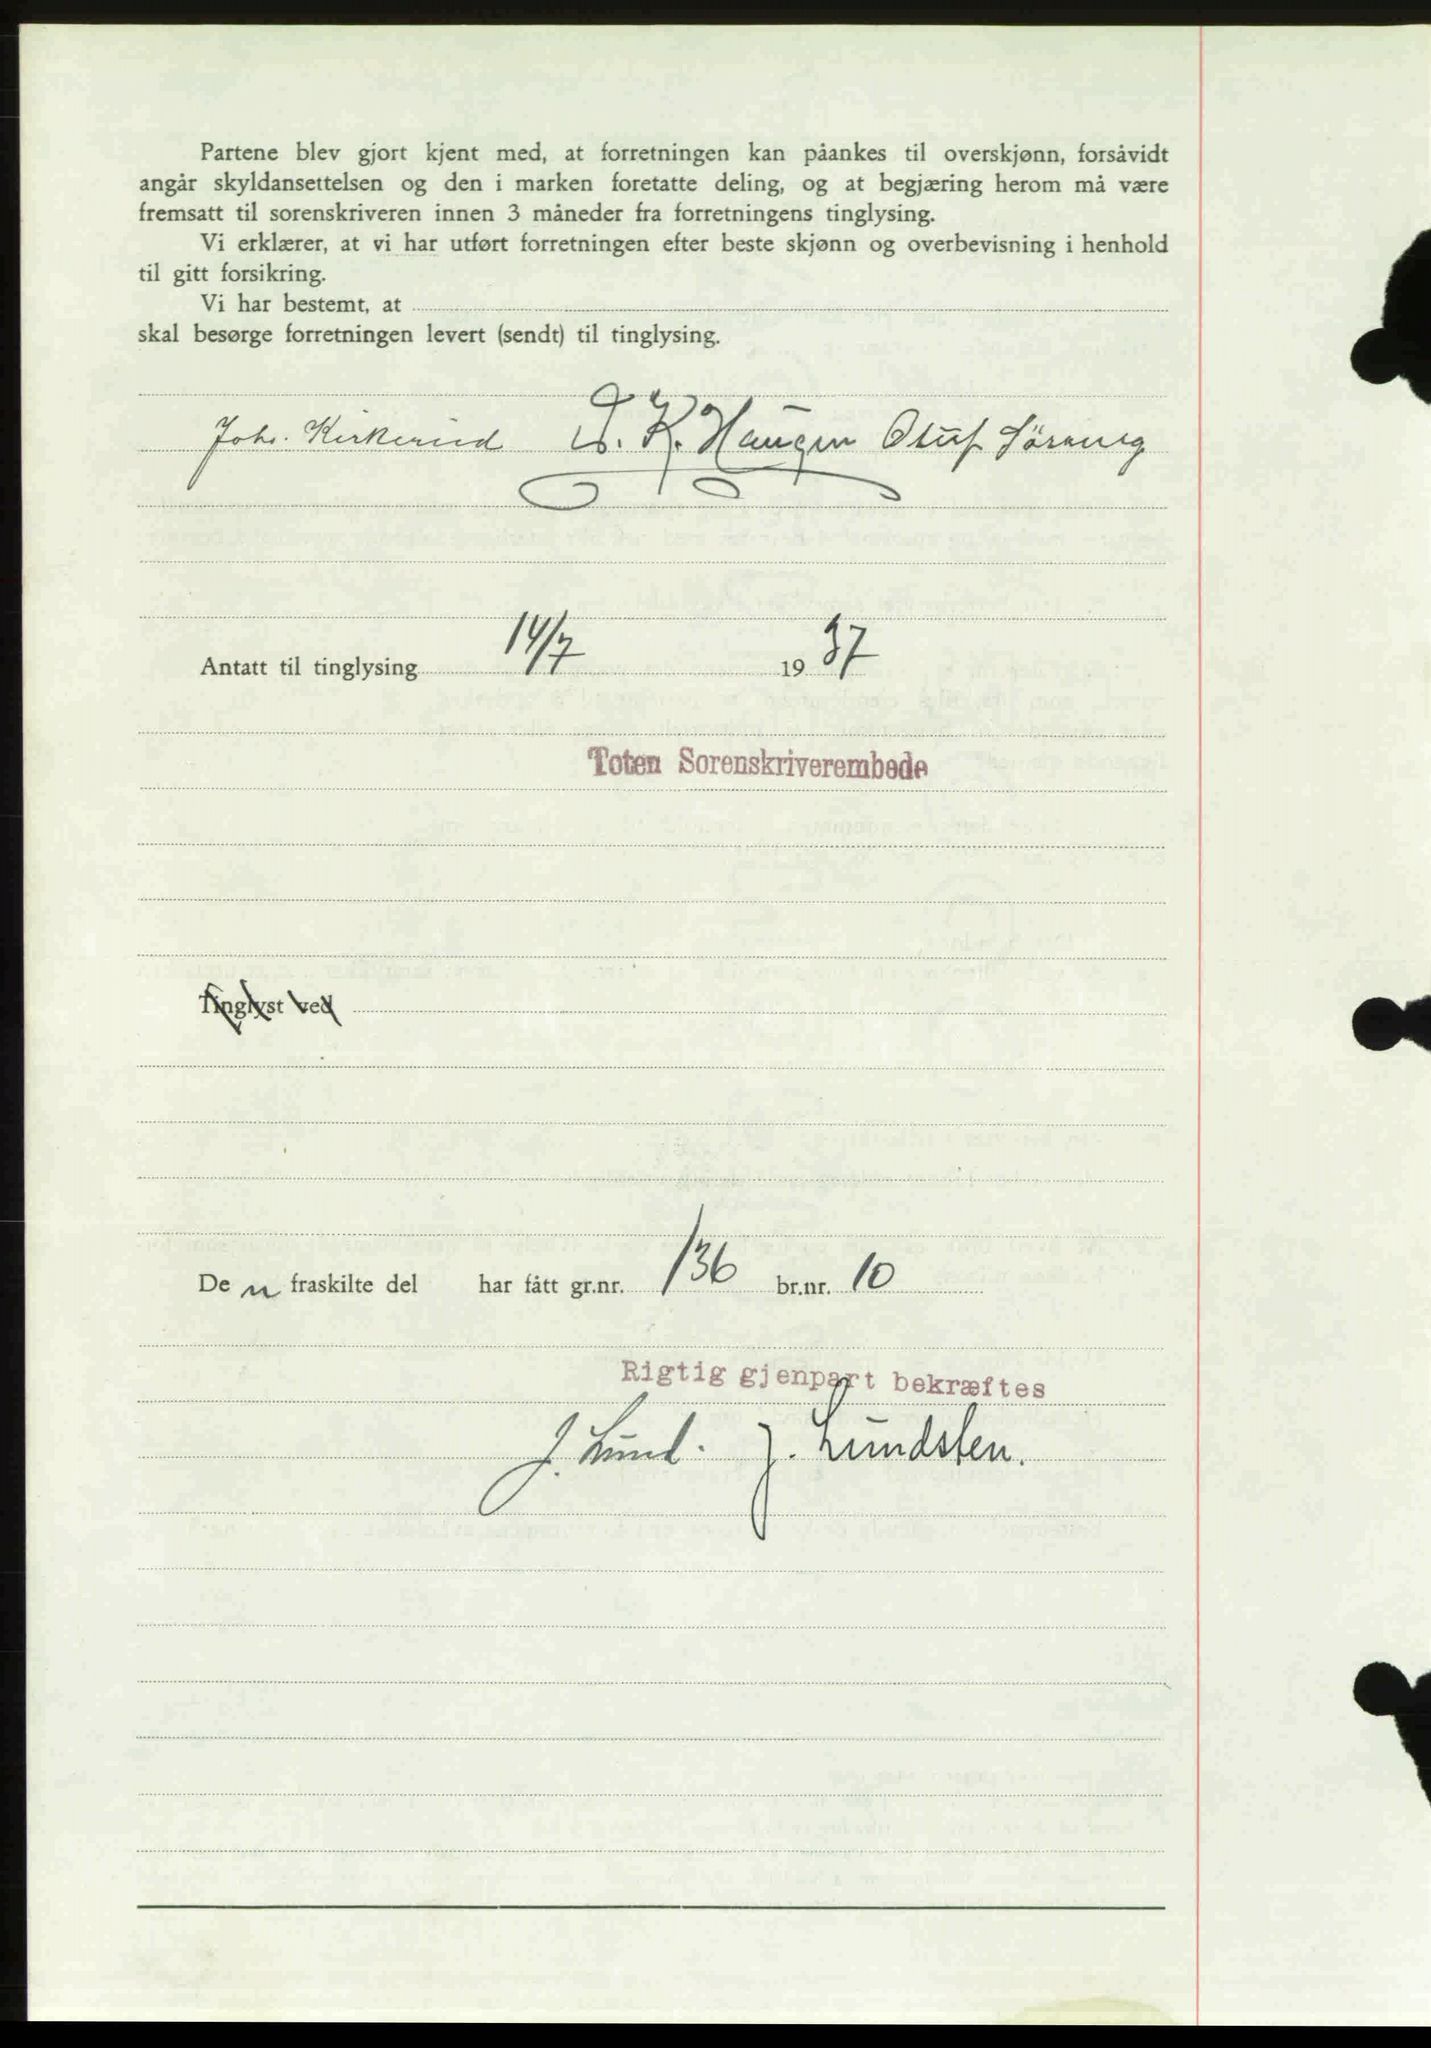 Partene blev gjort kjent med, at forretningen kan påankes til overskjønn, forsåvidt
angår skyldansettelsen og den i marken foretatte deling, og at begjæring herom må være
fremsatt til sorenskriveren innen 3 måneder fra forretningens tinglysing.
Vi erklærer, at vi har utført forretningen efter beste skjønn og overbevisning i henhold
til gitt forsikring.
Vi har bestemt, at
skal besørge forretningen levert (sendt) til tinglysing.
Johs. Kirkerud K. Haugen Oluf
Antatt til tinglysing 14/7 19 37
Toten Sorenskriverembede
Tinglyst ved
De n fraskilte del har fått gr.nr. 136 br.nr. 10
Rigtig gjenpart bekræftes
J. Lund. J. Lundsten.